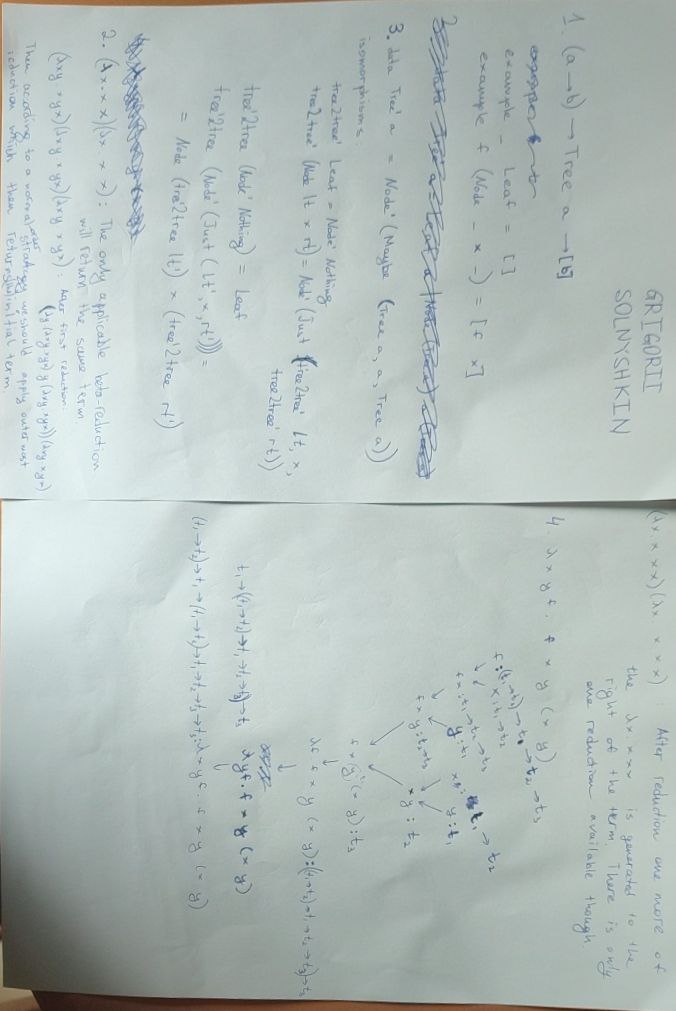 GRIGORII
SOLNYSHKIN
1. (a→b) → Tree a → [b]
example _ Leaf = []
example f (Node _ x _) = [f x]
3. data Tree' a = Node' (Maybe (Tree a, a, Tree a))
isomorphisms:
tree2tree' Leaf = Node' Nothing
tree2tree' (Node lt x rt) = Node' (Just (tree2tree' lt, x,
tree2tree' rt))
tree'2tree (Node' Nothing) = Leaf
tree'2tree (Node' (Just (lt', x, rt'))) =
= Node (tree'2tree lt') x (tree'2tree rt')
2. (λx. x x)(λx. x x) : The only applicable beta-reduction
will return the same term
(λxy. x y x)(λxy x yx)(λxy x yx) : After first reduction:
Then according to a normal order strategy we should apply outermost
reduction which then returns initial term.
(λx. x x x)(λx. x x x) : After reduction one more of
the λx. xxx is generated to the
right of the term. There is only
one reduction available though.
4. λ x y f. f x y (x y)
x : t₁→t₂
y : t₁
f x y : t₂→t₃
x y : t₂
f x y (x y) : t₃
λf f x y (x y) :
λ y f. f x y (x y)
λ x y f. f x y (x y)